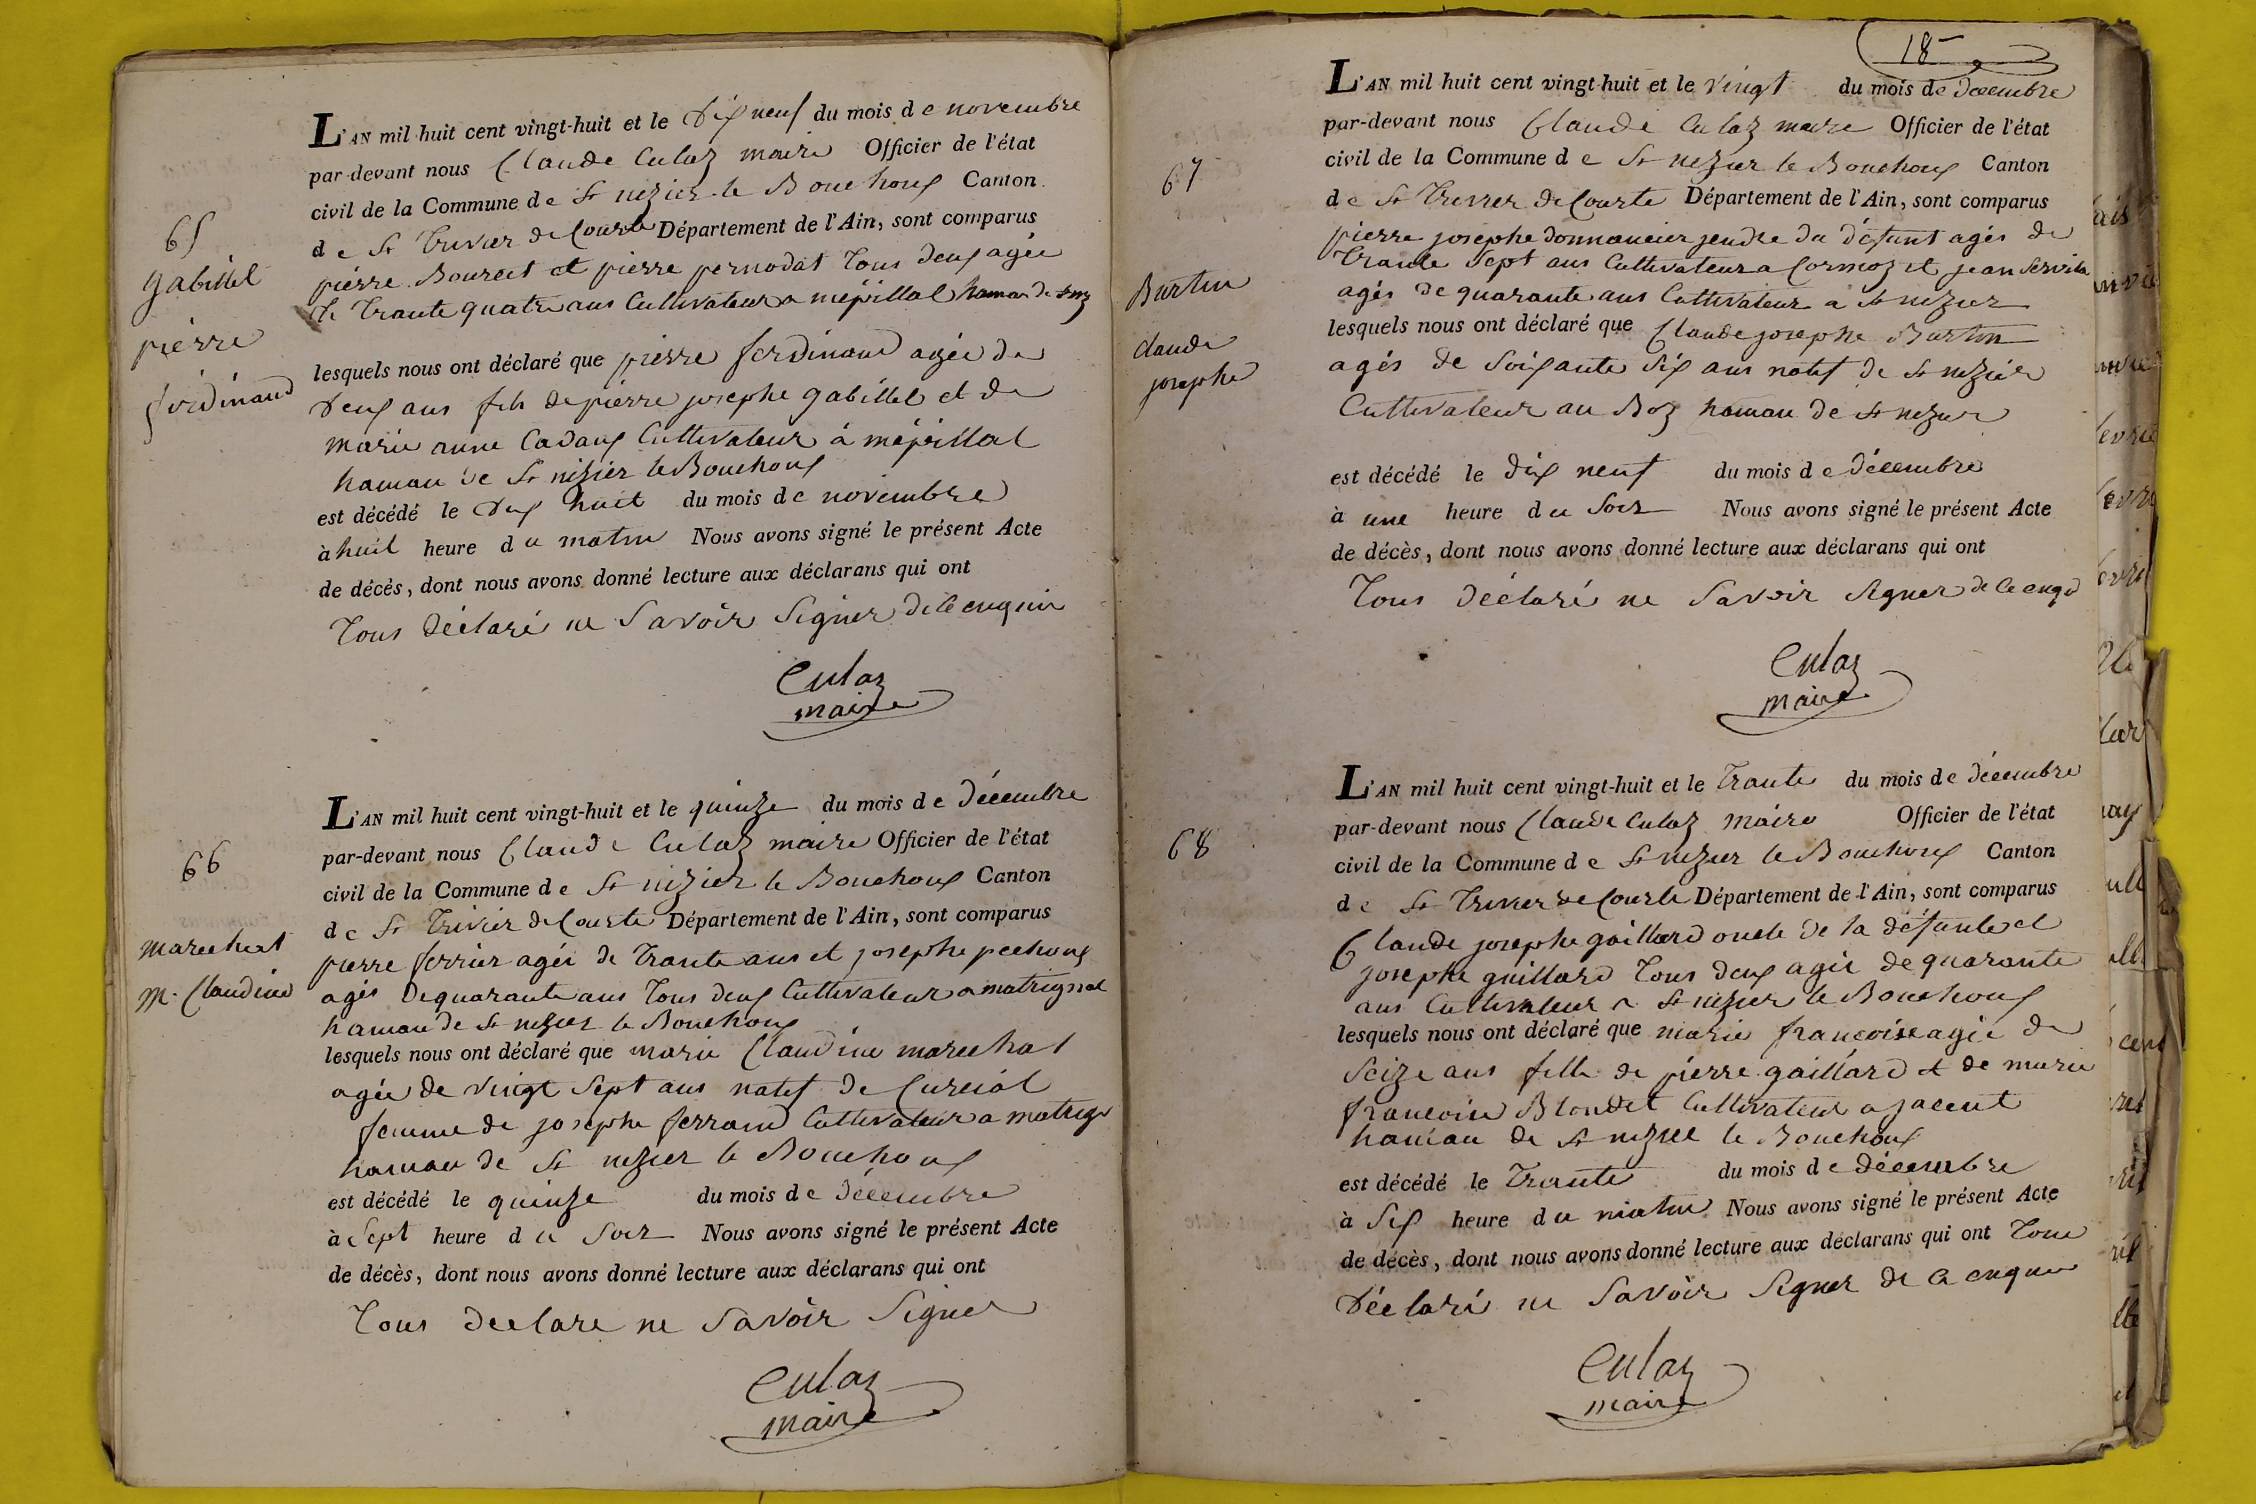 65
gabillet
pierre
ferdinand
L'AN mil huit cent vingt-huit et le Dix neuf du mois de novembre
par-devant nous Claude Culaz maire Officier de l'état
civil de la Commune de St nizier le Bouchoux Canton
de St Trivier de Courte Département de l'Ain, sont comparus
pierre Bourcet et pierre pernodat Tous deux agée
de Trante quatre ans Cultivateur a mépillat hamau de St niz
lesquels nous ont déclaré que pierre ferdinand agée de
Deux ans fils de pierre josephe gabillet et de
marie anne Cadaux Cultivateur á mépillat
hamau de St nizier le Bouchoux
est décédé le Dix huit du mois de novembre
à huit heure du matin Nous avons signé le présent Acte
de décès, dont nous avons donné lecture aux déclarans qui ont
Tous Déclaré ne Savoir Signer de ce enquir
Culaz
maire
66
marechat
M. Claudine
L'AN mil huit cent vingt-huit et le quinze du mois de Décembre
par-devant nous Claude Culaz maire Officier de l'état
civil de la Commune de St nizier le Bouchoux Canton
de St Trivier de Courte Département de l'Ain, sont comparus
pierre ferrier agés de Trante ans et josephe pechoux
agés de quarante ans Tous deux Cultivateur a matrignat
hamau de St nizier le Bouchoux
lesquels nous ont déclaré que marie Claudine marechat
agée de vingt Sept ans natif de Curciat
femme de josephe ferrand Cultivateur a matrign
hamau de St nizier le Bouchoux
est décédé le quinze du mois de Décembre
à Sept heure du Soir Nous avons signé le présent Acte
de décès, dont nous avons donné lecture aux déclarans qui ont
Tous declare ne Savoir Signer
Culaz
maire
18
67
Burtin
claude
josephe
L'AN mil huit cent vingt-huit et le vingt du mois de Decembre
par-devant nous Claude Culaz maire Officier de l'état
civil de la Commune de St nizier le Bouchoux Canton
de St Trivier de Courte Département de l'Ain, sont comparus
pierre josephe donnancier jendre du défunt agés de
Trante Sept ans Cultivateur a Cormoz et jean Servita
agés de quarante ans Cultivateur a St nizier
lesquels nous ont déclaré que Claude josephe Burtin
agés de Soixante Six ans natif de St nizier
Cultivateur au Boz hamau de St nizier
est décédé le dix neuf du mois de Décembre
à une heure du Soir Nous avons signé le présent Acte
de décès, dont nous avons donné lecture aux déclarans qui ont
Tous Déclaré ne Savoir Signer de ce enqui
Culaz
maire
68
L'AN mil huit cent vingt-huit et le Trante du mois de Décembre
par-devant nous Claude Culaz maire Officier de l'état
civil de la Commune de St nizier le Bouchoux Canton
de St Trivier de Courte Département de l'Ain, sont comparus
Claude josephe gaillard oncle de la défunte et
josephe guillard Tous deux agée de quarante
ans Cultivateur a St nizier le Bouchoux
lesquels nous ont déclaré que marie francoise agée de
Seize ans fille de pierre gaillard et de marie
francoise Blondet Cultivateur a jacent
hamau de St nizier le Bouchoux
est décédé le Trante du mois de décembre
à Six heure du matin Nous avons signé le présent Acte
de décès, dont nous avons donné lecture aux déclarans qui ont Tous
Déclaré ne Savoir Signer de ce enquir
Culaz
maire